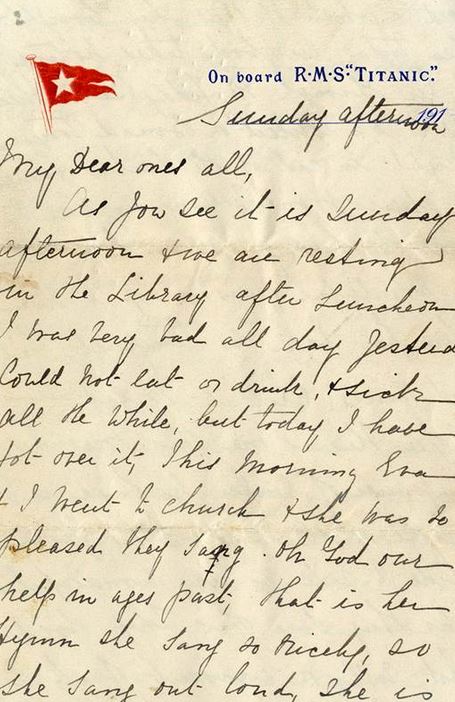 On board R·M·S·"TITANIC."
191
Sunday afternoon
My Dear ones all,
As you see it is Sunday
afternoon & we are resting
in the Library after Luncheon
I was very bad all day Yesterd
Could not eat or drink, & sick
all the while, but today I have
got over it, This Morning Eva
& I went to church & she was so
pleased they sang . Oh God our
help in ages past, that is her
Hymn she sang so nicely, so
she sang out loud, she is